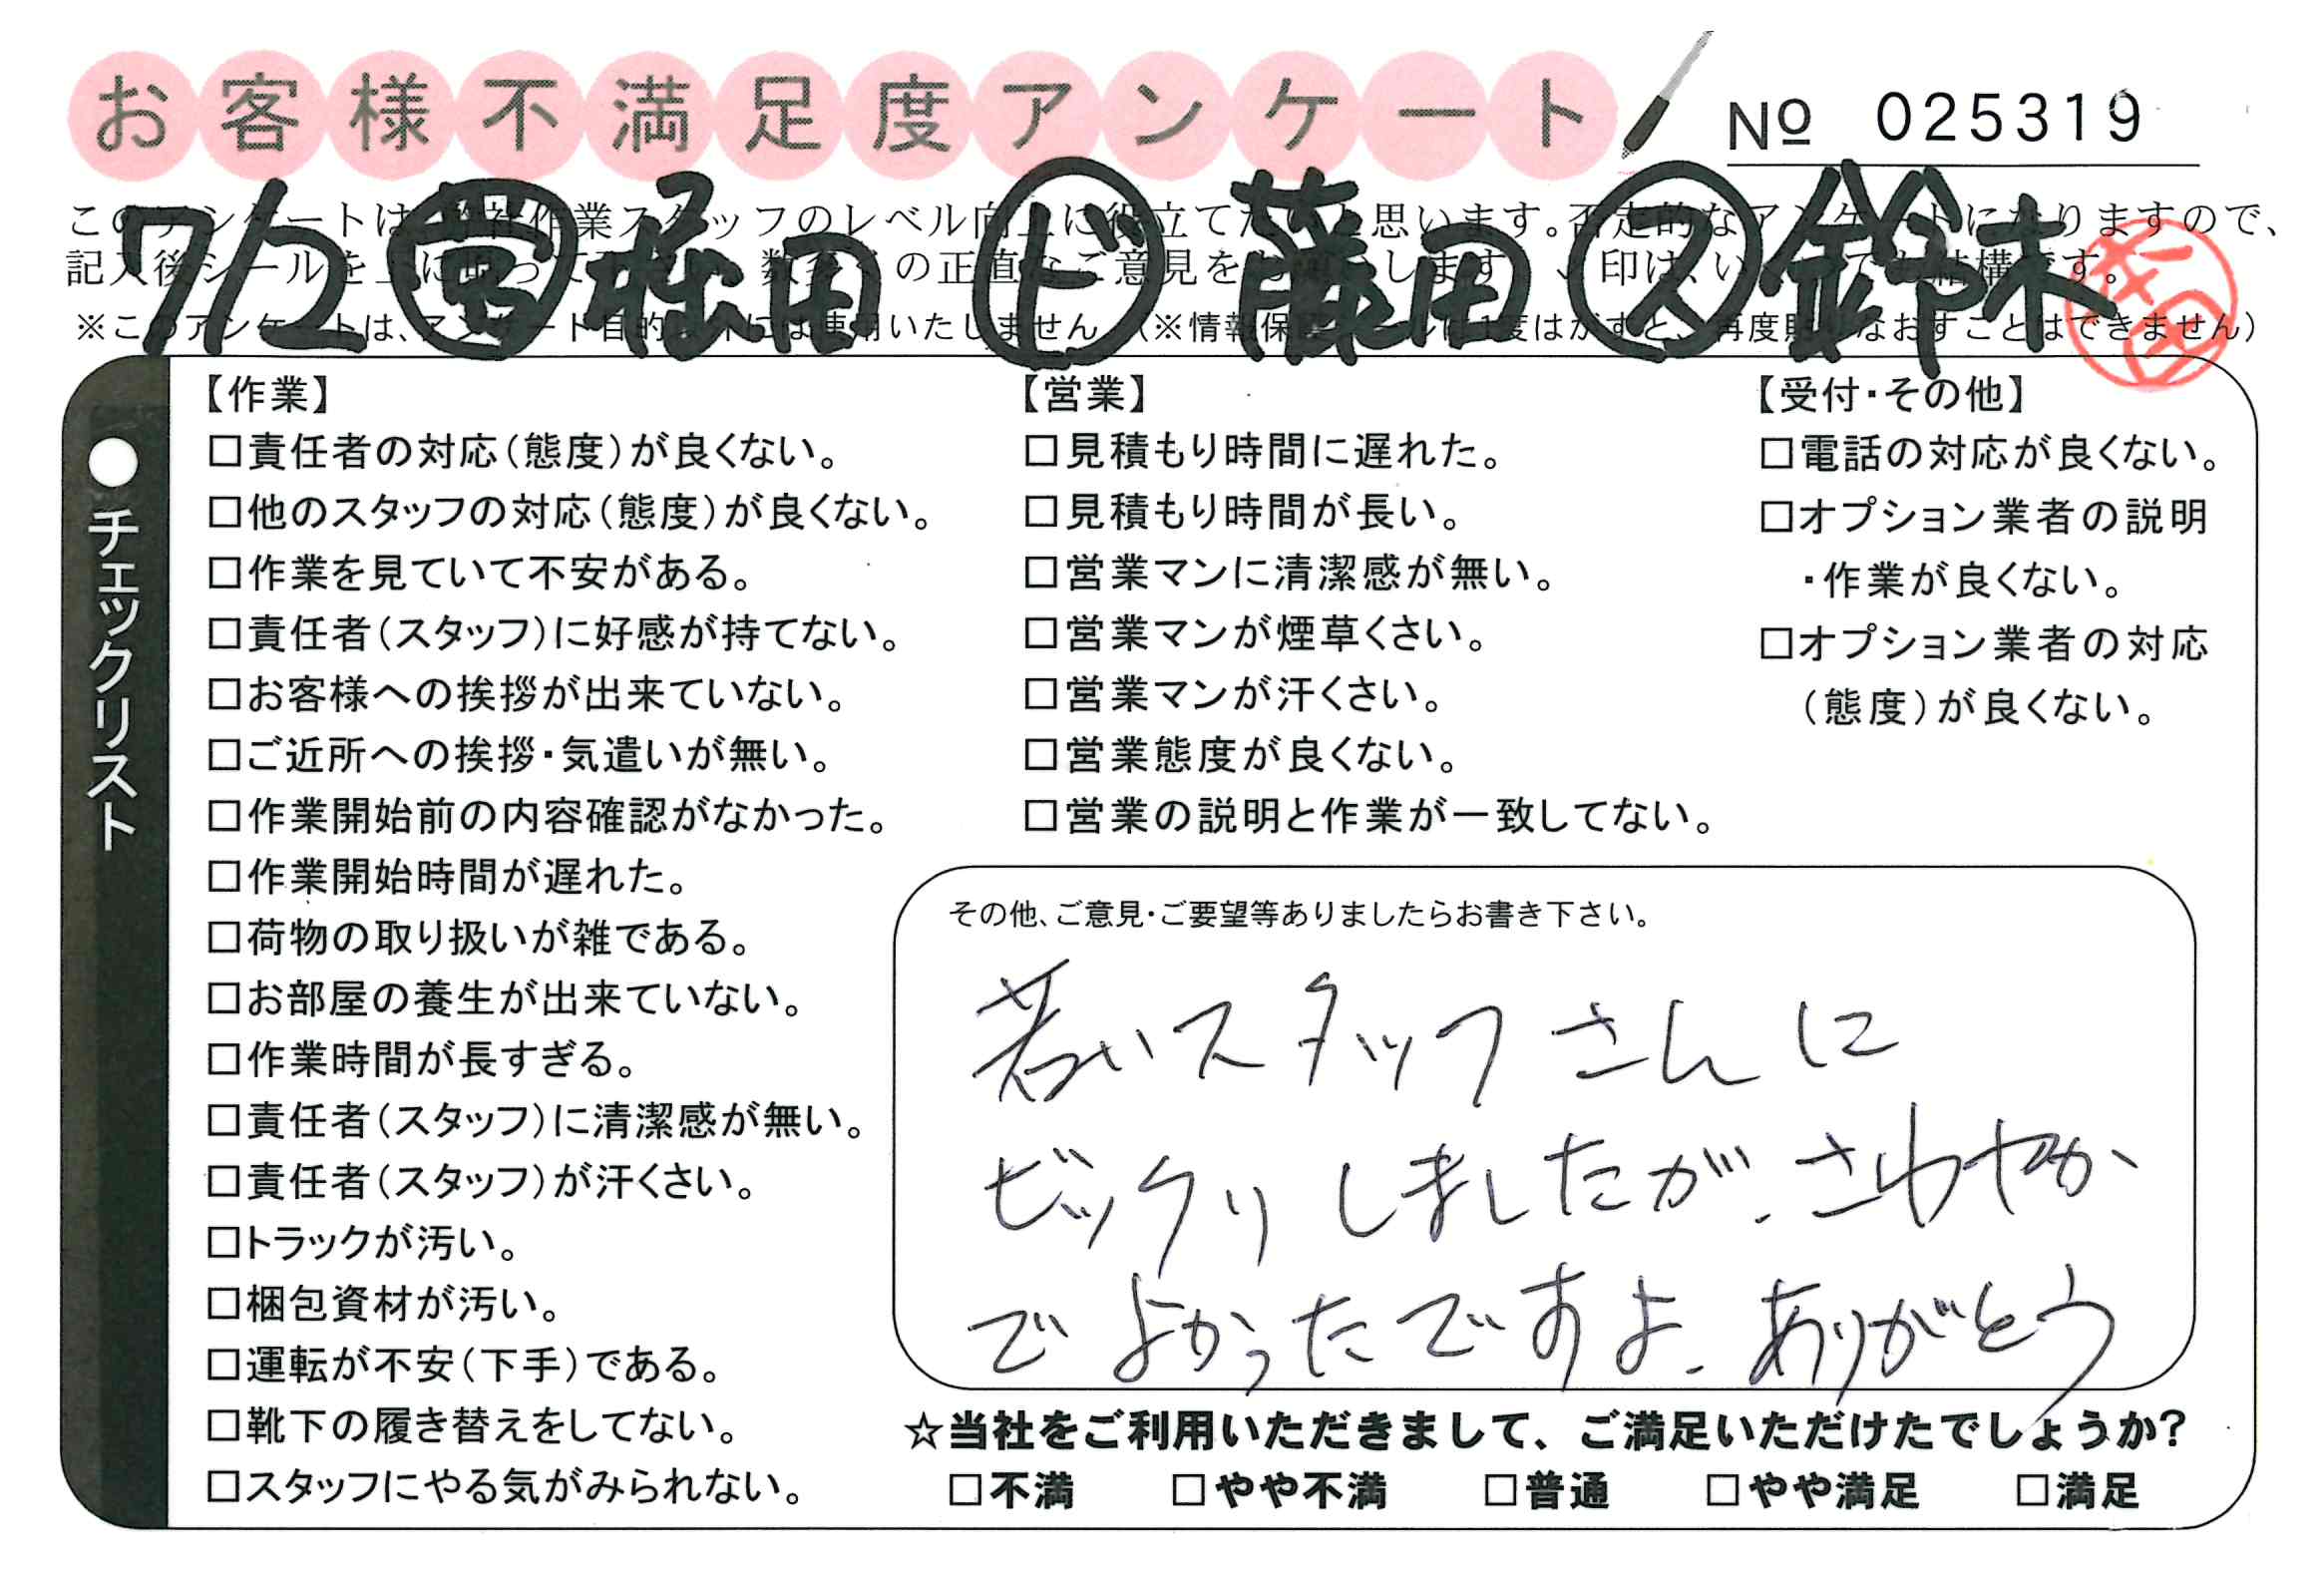 お客様不満足度アンケート
№ 025319
7/2 営 堀田 ド 藤田 ス 鈴木
※このアンケートは、アンケート目的以外には使用いたしません。（※情報保護シールは1度はがすと、再度貼りなおすことはできません）
●チェックリスト
【作業】
□責任者の対応（態度）が良くない。
□他のスタッフの対応（態度）が良くない。
□作業を見ていて不安がある。
□責任者（スタッフ）に好感が持てない。
□お客様への挨拶が出来ていない。
□ご近所への挨拶・気遣いが無い。
□作業開始前の内容確認がなかった。
□作業開始時間が遅れた。
□荷物の取り扱いが雑である。
□お部屋の養生が出来ていない。
□作業時間が長すぎる。
□責任者（スタッフ）に清潔感が無い。
□責任者（スタッフ）が汗くさい。
□トラックが汚い。
□梱包資材が汚い。
□運転が不安（下手）である。
□靴下の履き替えをしてない。
□スタッフにやる気がみられない。
【営業】
□見積もり時間に遅れた。
□見積もり時間が長い。
□営業マンに清潔感が無い。
□営業マンが煙草くさい。
□営業マンが汗くさい。
□営業態度が良くない。
□営業の説明と作業が一致してない。
【受付・その他】
□電話の対応が良くない。
□オプション業者の説明
・作業が良くない。
□オプション業者の対応
（態度）が良くない。
その他、ご意見・ご要望等ありましたらお書き下さい。
若いスタッフさんに
ビックリしましたが、さわやか
でよかったですよ。ありがとう
☆当社をご利用いただきまして、ご満足いただけたでしょうか？
□不満 □やや不満 □普通 □やや満足 □満足